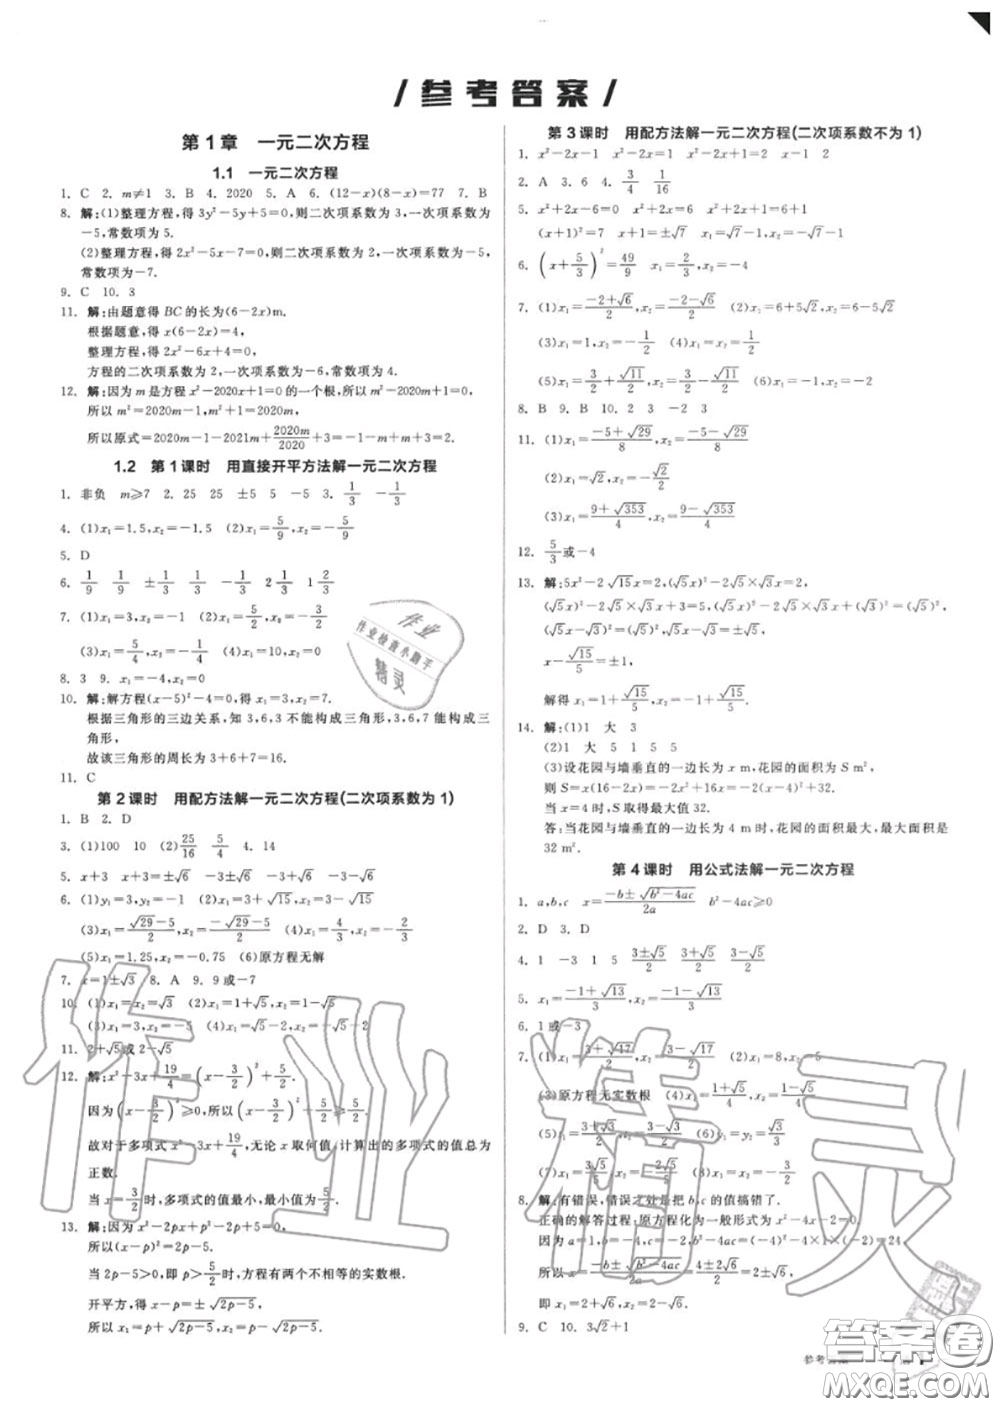 /参考答案/
第1章 一元二次方程
1.1 一元二次方程
1. C 2. m≠1 3. B 4. 2020 5. A 6. (12-x)(8-x)=77 7. B
8. 解:(1)整理方程,得 3y²-5y+5=0,则二次项系数为 3,一次项系数为
-5,常数项为 5.
(2)整理方程,得 2x²-5x-7=0,则二次项系数为 2,一次项系数为-5,
常数项为-7.
9. C 10. 3
11. 解:由题意得 BC 的长为(6-2x)m.
根据题意,得 x(6-2x)=4,
整理方程,得 2x²-6x+4=0,
方程的二次项系数为 2,一次项系数为-6,常数项为 4.
12. 解:因为 m 是方程 x²-2020x+1=0 的一个根,所以 m²-2020m+1=0,
所以 m²=2020m-1,m²+1=2020m,
所以原式=2020m-1-2021m+2020m/2020+3=-1+3=2.
1.2 第1课时 用直接开平方法解一元二次方程
1. 非负 m≥7 2. 25 25 ±5 5 -5 3. 1/3 -1/3
4. (1)x₁=1.5,x₂=-1.5 (2)x₁=5/9,x₂=-5/9
5. D
6. 1/9 1/9 ±1/3 -1/3 -1/3 2/3 1/3 2/3
7. (1)x₁=3,x₂=-1 (2)x₁=5/2,x₂=-3/2
(3)x₁=5/4,x₂=-1/4 (4)x₁=-10,x₂=0
8. 3 9 9. x₁=-4,x₂=0
10. 解:解方程(x-5)²-4=0,得 x₁=3,x₂=7.
根据三角形的三边关系,知 3,6,3 不能构成三角形,3,6,7 能构成三
角形,
故该三角形的周长为 3+6+7=16.
11. C
第2课时 用配方法解一元二次方程(二次项系数为 1)
1. B 2. D
3. (1)100 10 (2)25/16 5/4 4. 14
5. x+3 x+3=±√6 -3±√6
6. (1)y₁=3,y₂=-1 (2)x₁=3+√15,x₂=3-√15
(3)x₁=(√29-5)/2,x₂=(-√29-5)/2 (4)x₁=4/3,x₂=-2/3
(5)x₁=1.25,x₂=-0.75 (6)原方程无解
7. x=1±√3 8. A 9. 9 或-7
10. (1)x₁=x₂=√3 (2)x₁=1+√5,x₂=1-√5
(3)x₁=3,x₂=-5 (4)x₁=√5-2,x₂=-√5-2
11. 2+√5或 2-√5
12. 解:x²-3x+19/4=(x-3/2)²+5/2.
因为(x-3/2)²≥0,所以(x-3/2)²+5/2≥5/2,
故对于多项式 x²-3x+19/4,无论 x 取何值,计算出的多项式的值总为
正数.
当 x=3/2时,多项式的值最小,最小值为5/2.
13. 解:因为 x²-2px+p²-2p+5=0,
所以(x-p)²=2p-5.
当 2p-5>0,即 p>5/2时,方程有两个不相等的实数根.
开平方,得 x-p=±√(2p-5),
所以 x₁=p+√(2p-5),x₂=p-√(2p-5).
第3课时 用配方法解一元二次方程(二次项系数不为 1)
1. x²-2x-1 x²-2x=1 x²-2x+1=2 x-1 2
2. A 3. 6 4. 3/4 1/16
5. x²+2x-6=0 x²+2x=6 x²+2x+1=6+1
(x+1)²=7 x+1=±√7 x₁=√7-1,x₂=-√7-1
6. (x+5/3)²=49/9 x₁=2/3,x₂=-4
7. (1)x₁=(-2+√6)/2,x₂=(-2-√6)/2 (2)x₁=6+5√2,x₂=6-5√2
(3)x₁=1,x₂=-1/2 (4)x₁=x₂=1/2
(5)x₁=3/2+√11/2,x₂=3/2-√11/2 (6)x₁=2,x₂=-1
8. B 9. B 10. 2 3 -2 3
11. (1)x₁=(-5+√29)/8,x₂=(-5-√29)/8
(2)x₁=√2,x₂=-√2/2
(3)x₁=(9+√353)/4,x₂=(9-√353)/4
12. 5/3或-4
13. 解:5x²-2√15x=2,(√5x)²-2√5×√3x=2,
(√5x)²-2√5×√3x+3=5,(√5x)²-2√5×√3x+(√3)²=(√5)²,
(√5x-√3)²=(√5)²,√5x-√3=±√5,
x-√15/5=±1,
解得 x₁=1+√15/5,x₂=-1+√15/5.
14. 解:(1)1 大 3
(2)1 大 5 1 5 5
(3)设花园与墙垂直的一边长为 x m,花园的面积为 S m²,
则 S=x(16-2x)=-2x²+16x=-2(x-4)²+32.
当 x=4 时,S 取得最大值 32.
答:当花园与墙垂直的一边长为 4 m 时,花园的面积最大,最大面积是
32 m².
第4课时 用公式法解一元二次方程
1. a,b,c x=(-b±√(b²-4ac))/2a b²-4ac≥0
2. D 3. D
4. 1 -3 1 5 (3±√5)/2 (3+√5)/2 (3-√5)/2
5. x₁=(-1+√13)/3,x₂=(-1-√13)/3
6. 1 或-3
7. (1)x₁=(3+√17)/2,x₂=(3-√17)/2 (2)x₁=8,x₂=-1
(3)原方程无实数根 (4)x₁=(1+√5)/4,x₂=(1-√5)/4
(6)y₁=y₂=√3/2
(8)x₁=-1,x₂=-3/2
8. 解:有错误,错误之处是把 b,c 的值搞错了.
正确的解答过程:原方程化为一般形式为 x²-4x-2=0.
因为 a=1,b=-4,c=-2,b²-4ac=(-4)²-4×1×(-2)=24,
所以 x=(-b±√(b²-4ac))/2a=(4±2√6)/2=2±√6,
即 x₁=2+√6,x₂=2-√6.
9. C 10. 3√2+1
作业
作业检查小助手
精灵
作业精灵
答案圈
MXQE.COM